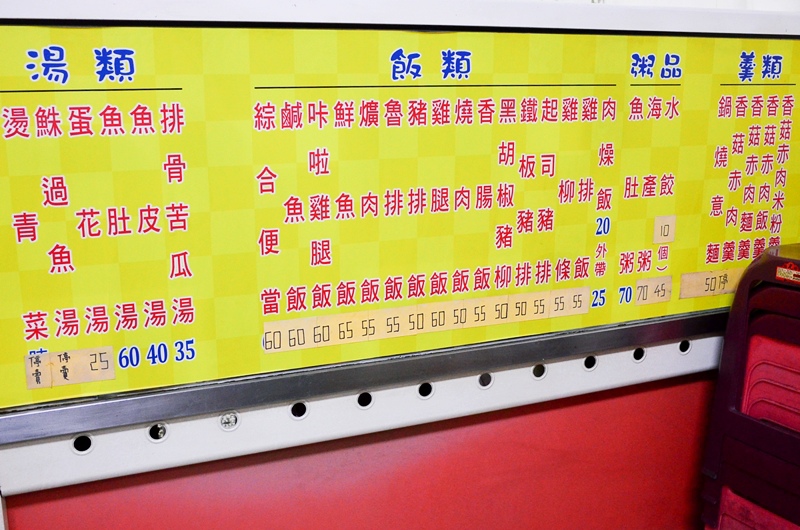 湯類
燙青菜 停賣
鮢過魚湯 停賣
蛋花湯 25
魚肚湯 60
魚皮湯 40
排骨苦瓜湯 35
飯類
綜合便當 60
鹹魚飯 60
咔啦雞腿飯 60
鮮魚飯 65
爌肉飯 55
魯排飯 55
豬排飯 50
雞腿飯 60
燒肉飯 50
香腸飯 55
黑胡椒豬柳 50
鐵板豬排 50
起司豬排 55
雞柳條 55
雞排飯 55
肉燥飯 20 外帶 25
粥品
魚肚粥 70
海產粥 70
水餃 10個) 45
羹類
鍋燒意麵 50
香菇赤肉羹 停
香菇赤肉麵羹
香菇赤肉飯羹
香菇赤肉米粉羹